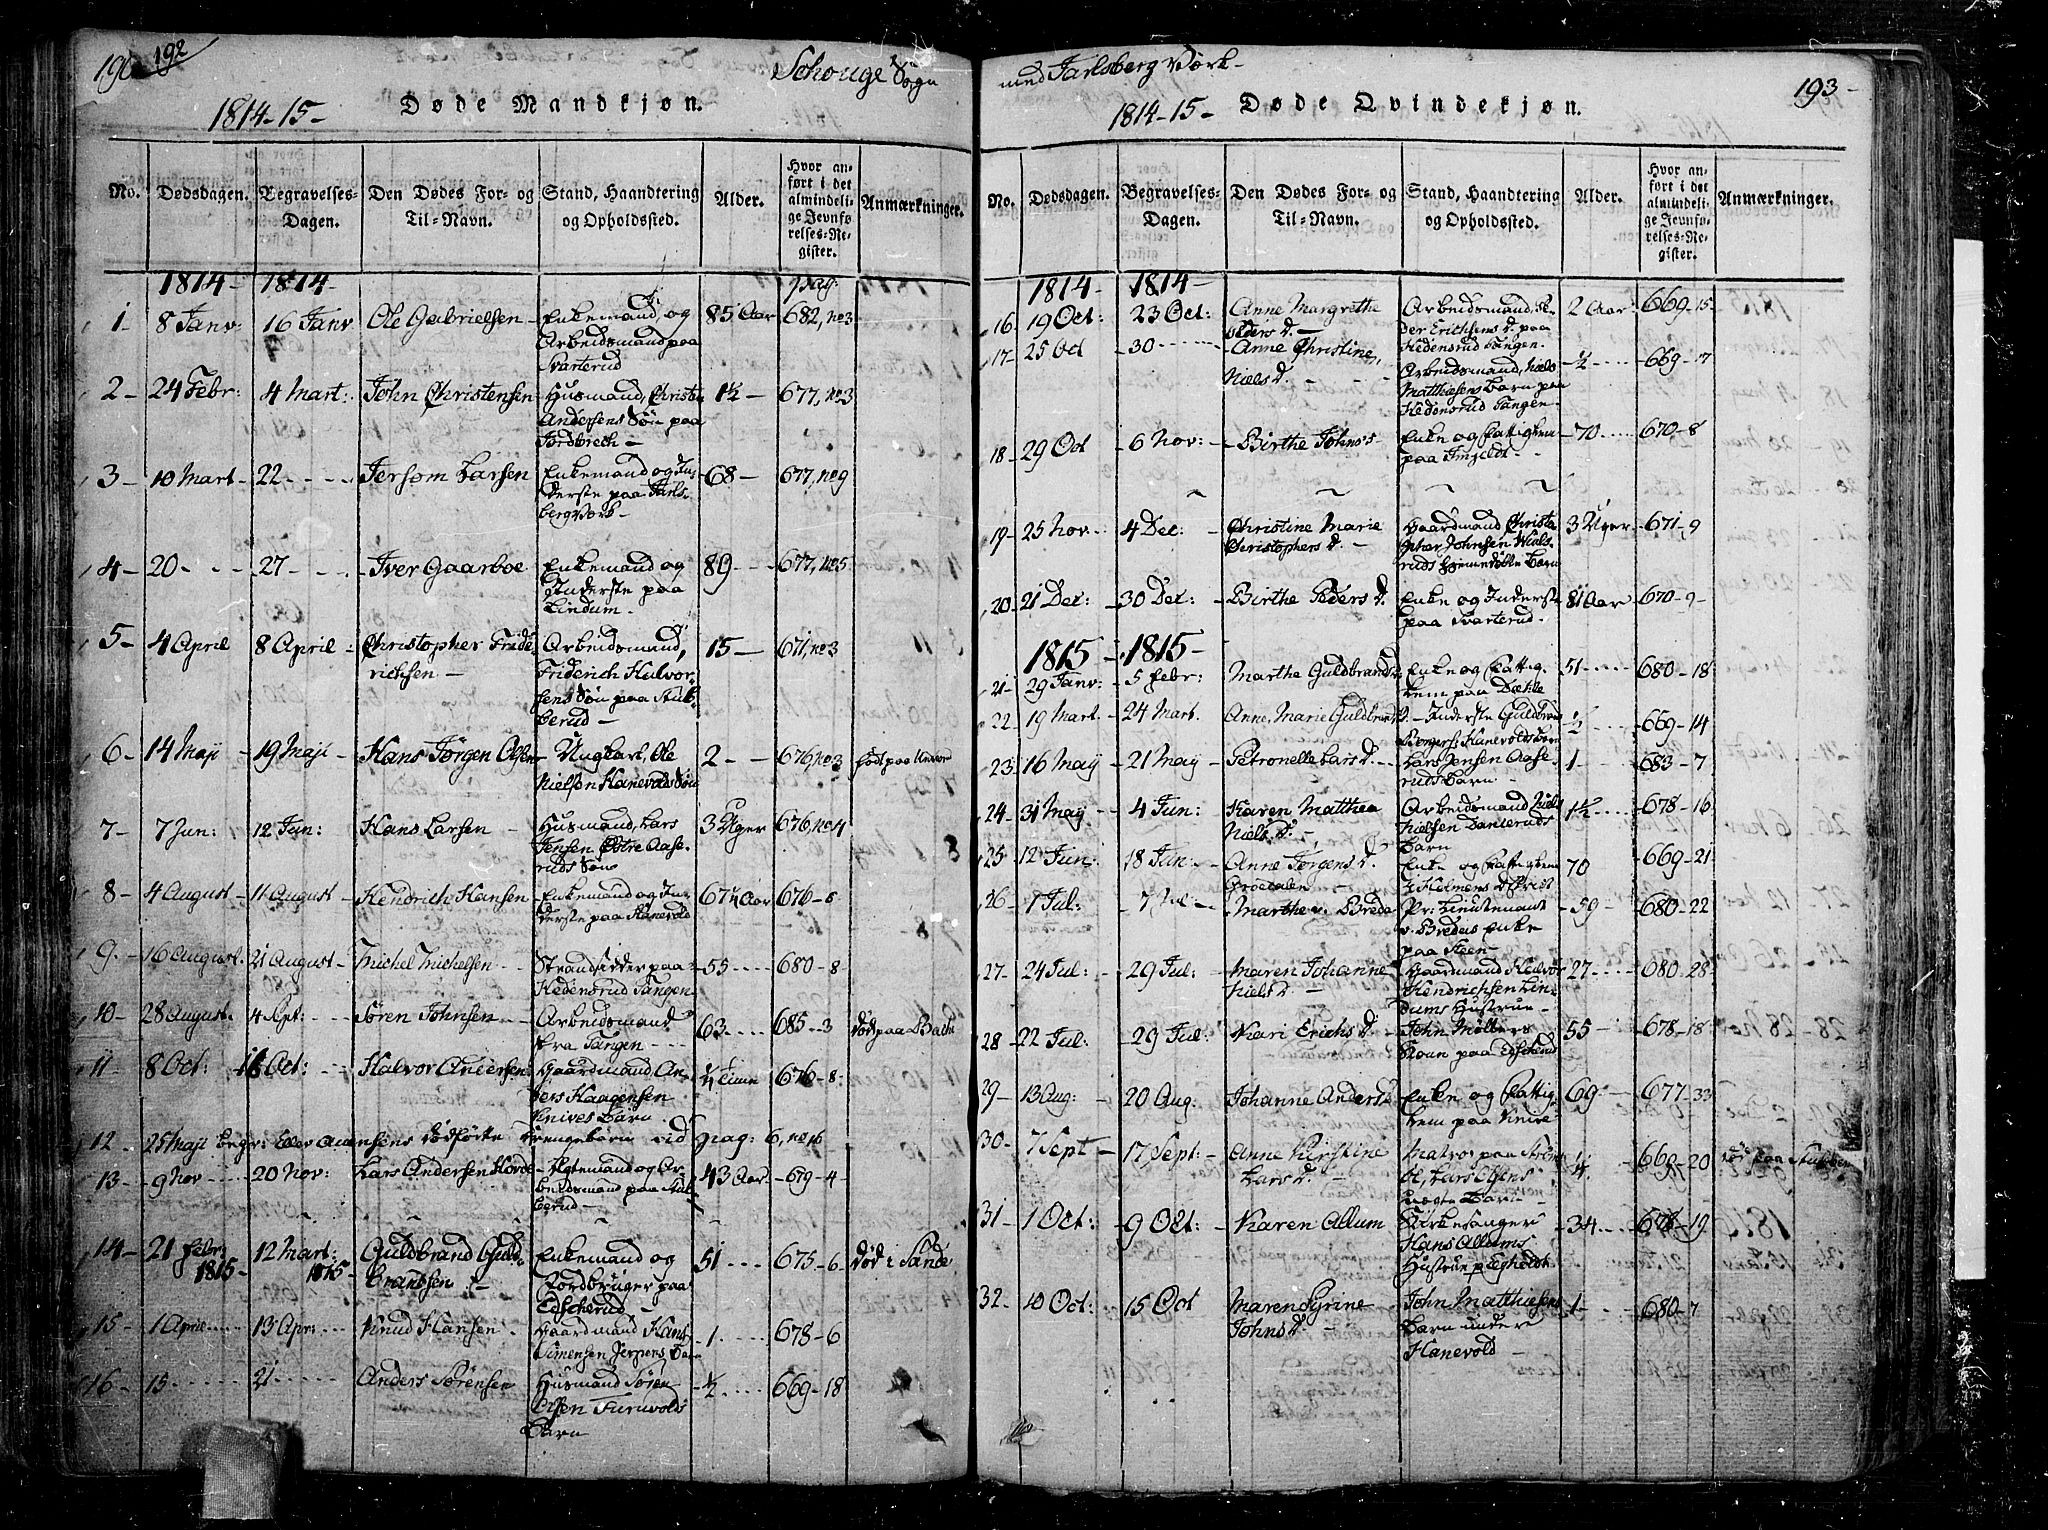 192
Schouge Sogn
1814-15-
Døde Mandkjøn.
No.
Dødsdagen.
Begravelses-
Dagen.
Den Dødes For- og
Til-Navn.
Stand, Haandtering
og Opholdssted.
Alder.
Hvor an-
ført i det
almindeli-
ge Jevnfø-
relses-Re-
gister.
Anmærkninger.
1814- 1814- pag:
1- 8 Janv: 16 Janv Ole Gabrielsen - Enkemand og 85 Aar 682, no3
Arbeidsmand paa
Svarterud
2- 24 Febr: 4 Mart: John Christensen Husmand, Christen 1½- 677, no3
Andersens Søn paa
3- 10 Mart 22 - - - Jersom Larsen Enkemand og In- 68- 677, no9
derste paa Jarls-
berg Værk-
4- 20 - - - 27 - - - Iver Gaarboe - Enkemand og 89 - 677, no5
Inderste paa
Lindum-
5- 4 April 8 April - Christopher Fride- Arbeidsmand, 15 - 671, no3
richsen - Friderich Halvor-
sens Søn paa Stub-
berud -
6- 14 Maji - 19 Maji - Hans Jørgen Olsen Ungkarl, Ole 2 - 676, no3
Nielsen Hanevolds Søn
7- 7 Jun: 12 Jun: Hans Larsen - Husmand, Lars 3 Uger 676, no4
Jensen Østre Aase-
ruds Søn
8- 4 August - 11 August - Hendrich Hansen Enkemand og In- 67¼ Aar 676-5
derste paa Hanevold
9- 16 August. 21 August - Michel Michelsen Strandsidder paa 55 - - - 680-8
Hedensrud Tangen
10- 28 August. 4 Spt: - Søren Johnsen - Arbeidsmand 63 - - - 685-3 død paa
fra Tangen -
11- 8 Oct: Oct: - - Halvor Andersen Gaardmand An- ½ Time 676-8
ders Haagensen
Knives Barn -
12- 25 Maji begr: Eller dødfødte Drengebarn vid pag: 6, no 16
13- 9 Nov - - 20 Nov: Lars Andersen - Ægtemand og Ar- 43 Aar 679-4
beidsmand paa Stub-
berud -
14- 21 Febr: 12 Mart: Guldbrand Guld- Enkemand og 51 - - - 675-6 død i Sande
1815- 1815- brandsen - Jordbruger paa
Edscherud -
15- 1 April - - 13 Apr: - - Knud Hansen. Gaardmand Hans -1- 678-6
Simensen Jerpens Barn
16- 15 - - - 21 - - - Anders Sørensen Husmand Søren -½ - - 669-18
Olsen Furuvolds
Barn
med Jarlsberg Værk-
193-
1814-15-
Døde Qvindekjøn.
No.
Dødsdagen.
Begravelses-
Dagen.
Den Dødes For- og
Til-Navn.
Stand, Haandtering
og Opholdssted.
Alder.
Hvor an-
ført i det
almindeli-
ge Jevnfø-
relses-Re-
gister.
Anmærkninger.
1814- 1814-
16- 19 Oct: 23 Oct: Anne Margrethe Arbeidsmand, Pe- 2 Aar: 669-15
Peders D. - der Erichsens D. paa
Hedensrud Tangen.
17- 25 Oct - 30 - - - - Anne Christine, Arbeidsmand, Niels -½ - - 669-7
Niels D. - - - Matthiesens Barn paa
Hedensrud Tangen -
18- 29 Oct - 6 Nov: - Birthe Johns D. Enke og Fattiglem -70 - - 670-8
paa
19- 25 Nov - - 4 Dec: Christine Marie Gaardmand Christo- 3 Uger - 671-9
Christophers D. - pher Johnsen
Barn
20- 21 Dec: - 30 Dec: - Birthe Peders D. Enke og Inderste 81 Aar 670-9-
paa Svarterud.
1815- 1815-
21- 29 Janv: - 5 Febr: Marthe Guldbrands D. Enke og Fattig- 51 - - - 680-18
lem paa
22- 19 Mart. - 24 Mart. Anne Marie Guldbrands D. - Inderste Guldbran ½ - 669-14
Hanevolds Barn
23 16 May - 21 May - Petronelle Lars D. - - Lars Jensen Aase- -1- 683-7
ruds Barn -
24- 31 May - 4 Jun: - Karen Matthea Arbeidsmand Niels 1½ - 678-16
Niels D. - Nielsen
Barn
25- 12 Jun: 18 Jun: - Anne Jørgens D. Enke og Fattiglem 70 669-21
26- 1 Jul: - 7 Jul: - Marthe v. Breda Pr: Lieutenant -59 - 680-22
v. Bredas Enke
paa Steen -
27- 24 Jul: - 29 Jul: - Maren Johanne Gaardmand Halvor 27 - - - 680-28
Niels D. - Hendrichsen Lin-
dums Hustrue -
28- 22 Jul: - 29 Jul: - Kari Erichs D. - John Møllers 55 - 678-18
Kone paa Edscherud
29- 13 Aug: - 20 Aug: Johanne Anders D. Enke og Fattig- 69 - - 677-33
lem paa Knive -
30- 7 Sept - 17 Sept: - Anne Kirstine Matros paa ¼. 669-20 død paa Stubber
Lars D. - Lars
Barn -
31- 1 Oct: - 9 Oct: - Karen Allum Kirkesanger 34 - - 678-19
Hans Allums
Hustrue
32- 10 Oct: - 15 Oct Maren Syrine John Matthiesens -1- - 680-7
Johns D. - Barn under
Hanevold -